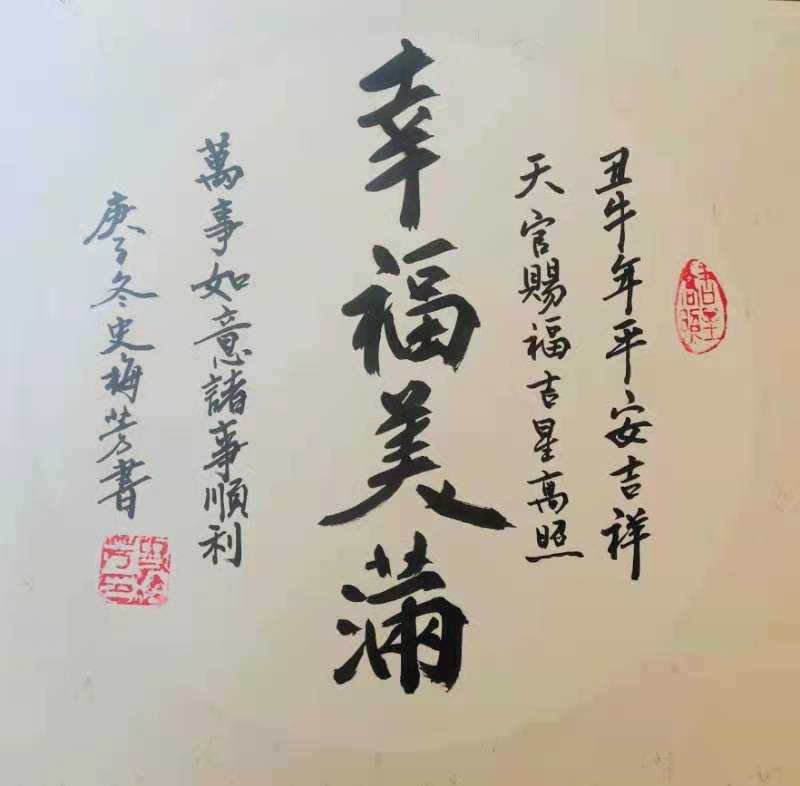 丑牛年平安吉祥
天官賜福吉星高照
幸福美满
萬事如意諸事順利
庚子冬史梅芳書
吉星高照